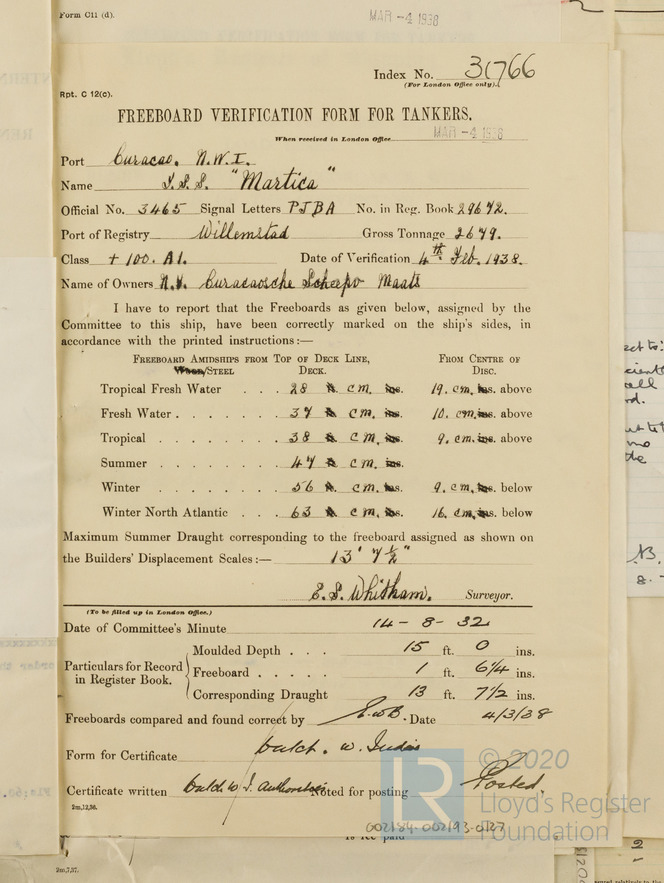 Form C11 (d).
MAR -4 1938
Index No. 31766
(For London Office only).
Rpt. C 12(c).
FREEBOARD VERIFICATION FORM FOR TANKERS.
When received in London Office MAR -4 1938
Port Curacao. N.W.I.
Name T.S.S. "Martica"
Official No. 3465 Signal Letters PJBA No. in Reg. Book 29672.
Port of Registry Willemstad Gross Tonnage 2679.
Class + 100. A1. Date of Verification 4th Feb. 1938.
Name of Owners N.V. Curacaosche Scheepv Maats
I have to report that the Freeboards as given below, assigned by the
Committee to this ship, have been correctly marked on the ship's sides, in
accordance with the printed instructions:—
FREEBOARD AMIDSHIPS FROM TOP OF DECK LINE, FROM CENTRE OF
/STEEL DECK. DISC.
Tropical Fresh Water . . . 28 cm. 19. cm. above
Fresh Water . . . . . . 37 cm. 10. cm. above
Tropical . . . . . . 38 cm. 9. cm. above
Summer . . . . . . 47 cm.
Winter . . . . . . 56 cm. 9. cm. below
Winter North Atlantic . . . 63 cm. 16. cm. below
Maximum Summer Draught corresponding to the freeboard assigned as shown on
the Builders' Displacement Scales:— 13' 7½"
E. S. Whitham. Surveyor.
(To be filled up in London Office.)
Date of Committee's Minute 14-8-32
Particulars for Record in Register Book.
Moulded Depth . . . 15 ft. 0 ins.
Freeboard . . . . . 1 ft. 6¼ ins.
Corresponding Draught 13 ft. 7½ ins.
Freeboards compared and found correct by E.W.B. Date 4/3/38
Form for Certificate Dutch. W. Indies
Certificate written Dutch W I. Authorities Noted for posting Posted.
2m,12,36.
© 2020
LR
Lloyd's Register
Foundation
002184-002193-0127
2m,7,37.